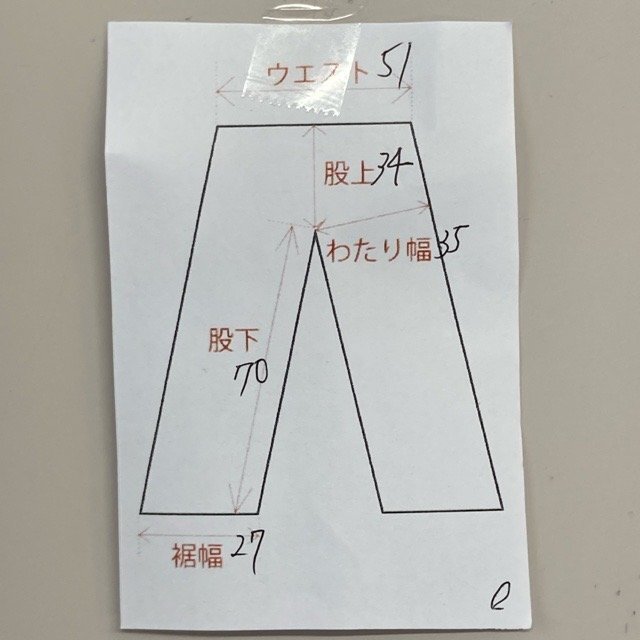 ウエスト 51
股上 34
わたり幅 35
股下
70
裾幅 27
e